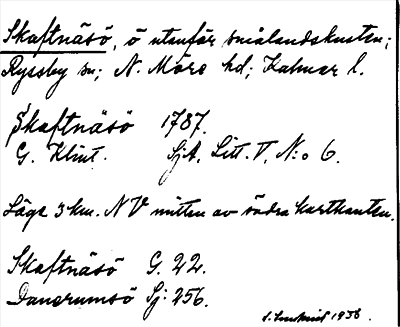 Skaftnäsö, ö utanför smålandskusten;
Ryssby sn; N. Möre hd; Kalmar l.
Skaftnäsö 1787.
G. Klint. SjA. Litt. V, N:o 6.
Läge 3 km. NV mitten av södra kartkanten.
Skaftnäsö G. 22.
Danerumsö Sj: 256.
1936.